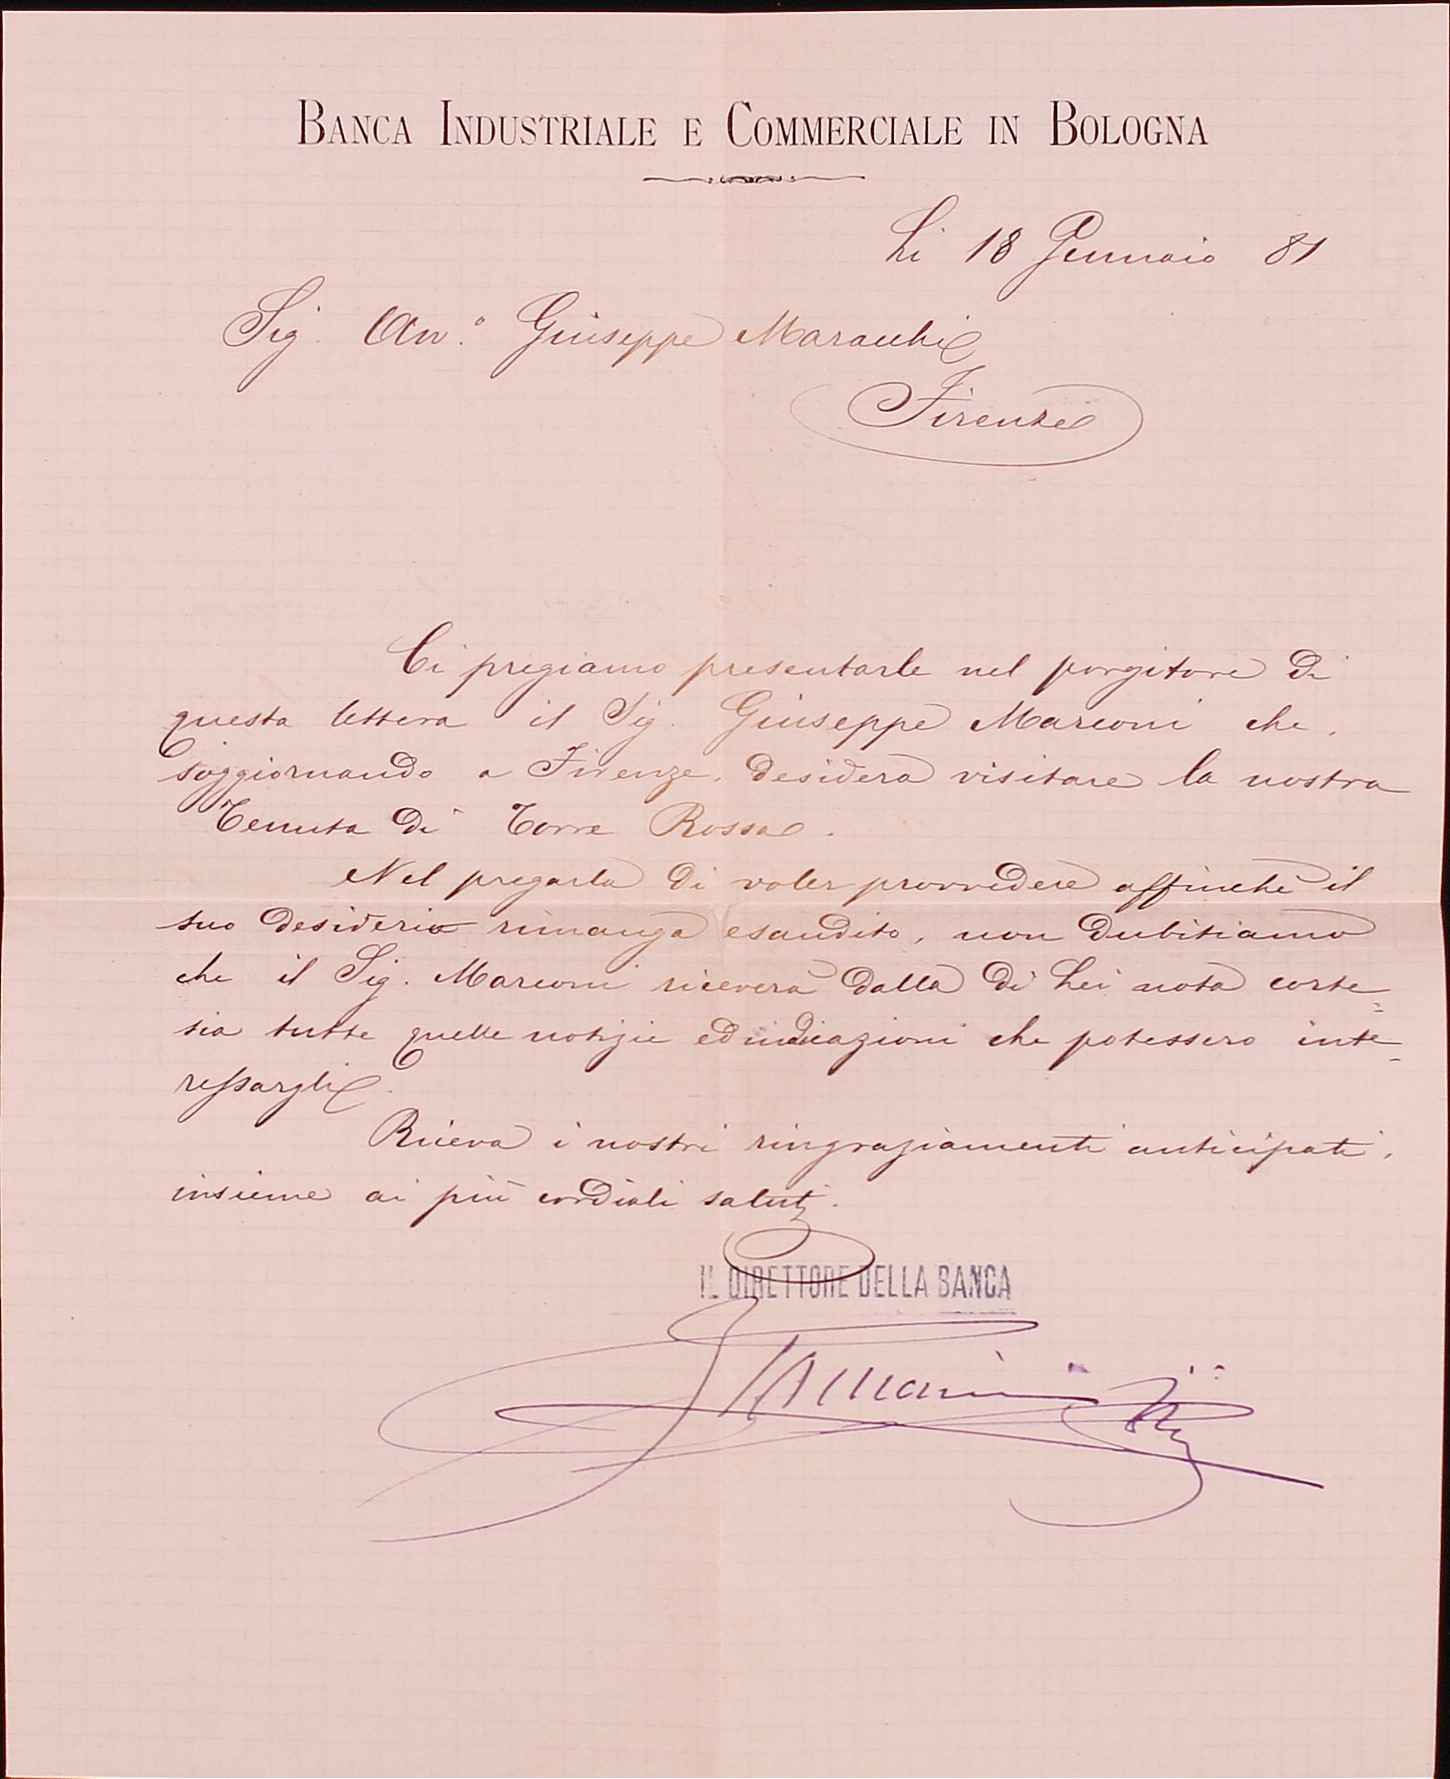 BANCA INDUSTRIALE E COMMERCIALE IN BOLOGNA
Li 18 Gennaio 81
Sig. Giuseppe Maracchi
Firenze
Ci pregiamo presentarle nel porgitore di
questa lettera il Sig. Giuseppe Marconi che,
soggiornando a Firenze, desidera visitare la nostra
Tenuta di Torre Rossa.
Nel pregarla di voler provvedere affinchè il
suo desiderio rimanga esaudito, non dubitiamo
che il Sig. Marconi riceverà dalla di Lei nota corte=
sia tutte quelle notizie ed indicazioni che potessero inte=
ressargli.
Riceva i nostri ringraziamenti anticipati,
insieme ai più cordiali saluti.
IL DIRETTORE DELLA BANCA